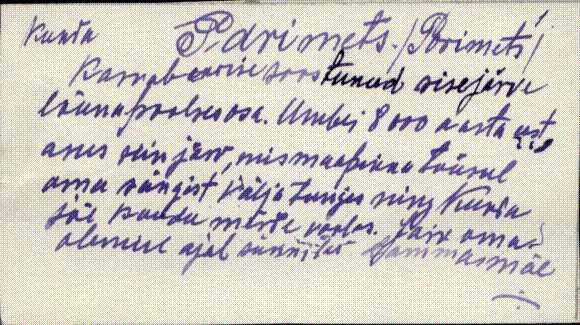 Kunda Pärimets. /Põrimets/
Kamabuurise soostunud sisejärve
lõunapoolses osa. Umbes 8000 aasta eest
asus siin järv, mis maapinna tõusul
oma sängist välja tungis ning Kunda
jõe kaudu merre voolas. Järve oma-
olemise ajal Lammasmäe